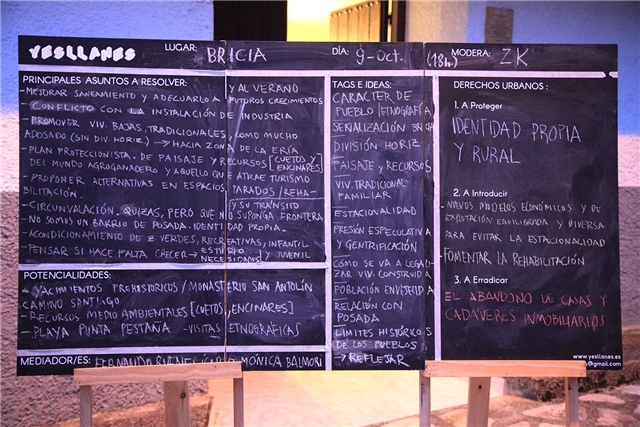 YESLLANES
LUGAR: BRICIA
DÍA: 9-Oct. (18h)
MODERA: ZK
PRINCIPALES ASUNTOS A RESOLVER:
-MEJORAR SANEAMIENTO Y ADECUARLO A FUTUROS CRECIMIENTOS Y AL VERANO
-CONFLICTO CON LA INSTALACIÓN DE INDUSTRIA
-PROMOVER VIV. BAJAS, TRADICIONALES, COMO MUCHO
ADOSADO (SIN DIV. HORIZ) → HACIA ZONA DE LA ERÍA
-PLAN PROTECCIONISTA. DE PAISAJE Y RECURSOS [CUETOS Y ENCINARES]
DEL MUNDO AGROGANADERO Y AQUELLO QUE ATRAE TURISMO
-PROPONER ALTERNATIVAS EN ESPACIOS PARADOS/REHA-
BILITACIÓN. Y SU TRÁNSITO
-CIRCUNVALACIÓN, QUIZAS, PERO QUE NO SUPONGA FRONTERA
-NO SOMOS UN BARRIO DE POSADA. IDENTIDAD PROPIA.
-ACONDICIONAMIENTO DE Z VERDES, RECREATIVAS, INFANTIL Y JUVENIL
-PENSAR SI HACE FALTA CRECER → ESTUDIO NECESIDADES
POTENCIALIDADES:
-YACIMIENTOS PREHISTÓRICOS / MONASTERIO SAN ANTOLÍN
CAMINO SANTIAGO
-RECURSOS MEDIO AMBIENTALES [CUETOS, ENCINARES]
-PLAYA PUNTA PESTAÑA -VISITAS ETNOGRÁFICAS
MEDIADOR/ES: FERNANDO MONICA BALMORI
TAGS E IDEAS:
CARACTER DE
PUEBLO / ETNOGRAFÍA
SEÑALIZACIÓN
DIVISIÓN HORIZ
PAISAJE Y RECURSOS
VIV. TRADICIONAL
FAMILIAR
ESTACIONALIDAD
PRESIÓN ESPECULATIVA
Y GENTRIFICACIÓN
CÓMO SE VA A LEGALI-
ZAR VIV. CONSTRUIDA
POBLACIÓN ENVEJECIDA
RELACIÓN CON
POSADA
LÍMITES HISTÓRICOS
DE LOS PUEBLOS
→ REFLEJAR
DERECHOS URBANOS :
1. A Proteger
IDENTIDAD PROPIA
Y RURAL
2. A Introducir
-NUEVOS MODELOS ECONÓMICOS Y DE
EXPLOTACIÓN EQUILIBRADA Y DIVERSA
PARA EVITAR LA ESTACIONALIDAD
-FOMENTAR LA REHABILITACIÓN
3. A Erradicar
EL ABANDONO DE CASAS Y
CADÁVERES INMOBILIARIOS
www.yesllanes.es
@gmail.com